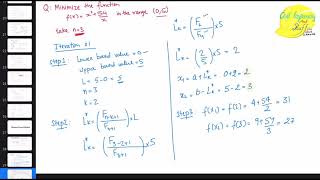 Q: Minimize the function
f(x) = x² + 54/x in the range (0,5)
take n=3
Iteration 01
Step1: Lower bound value = 0
upper bound value = 5
L = 5-0 = 5
n = 3
k = 2
Step2: L*k = (F n-k+1 / F n+1) × L
L*k = (F 3-2+1 / F 3+1) × 5
L*k = (F2 / F4) × 5
L*k = (2/5) × 5 = 2
x1 = a + L*k = 0+2 = 2
x2 = b - L*k = 5-2 = 3
Step3 f(x1) = f(2) = 4 + 54/2 = 31
f(x2) = f(3) = 9 + 54/3 = 27